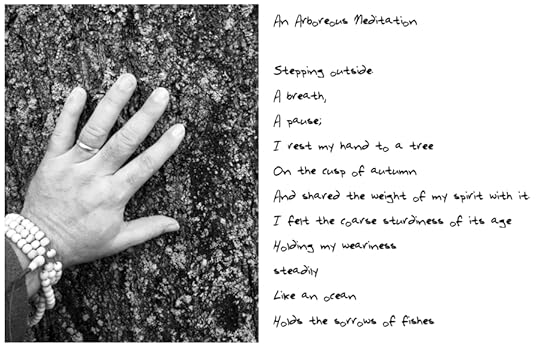 An Arboreous Meditation
Stepping outside
A breath,
A pause;
I rest my hand to a tree
On the cusp of autumn
And shared the weight of my spirit with it
I felt the coarse sturdiness of its age
Holding my weariness
steadily
Like an ocean
Holds the sorrows of fishes